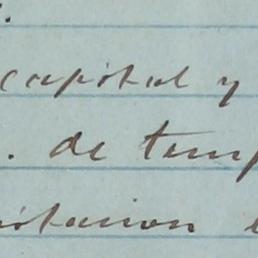 capital y
. de temp
itacion